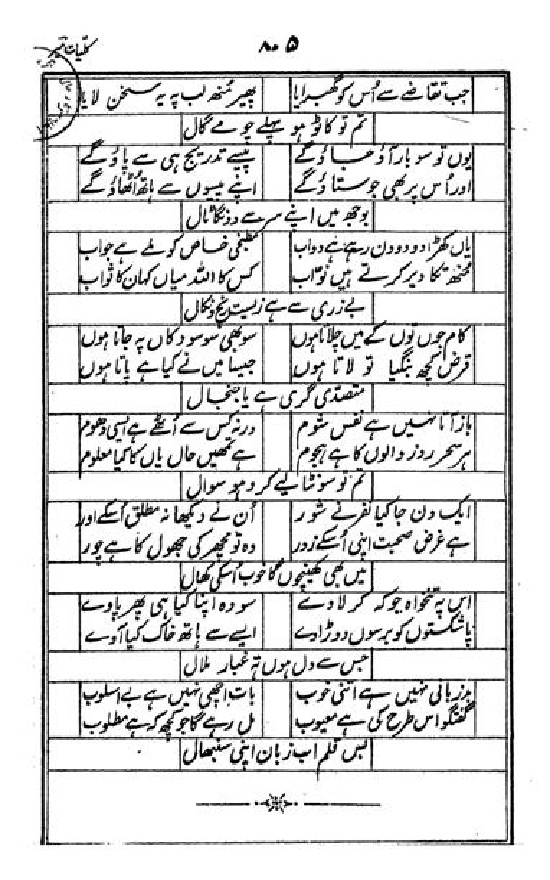 ۸۰۵
کلیات میر
جب تقاضے سے اُس کو گھبرایا پھیر مُنھ لب پہ یہ سخن لایا
تم تو کاٹو ہو پہلے چومے گال
یوں تو سو بار آؤ جاؤ گے پیسے تدریج ہی سے پاؤ گے
اور اُس پر بھی جو ستاؤ گے اپنے پیسوں سے ہاتھ اُٹھاؤ گے
بوجھ میں اپنے سر سے دونگا ٹال
یاں کھڑا دو دو دن رہے ہے دواب مطبخی خاص کو ملے ہے جواب
مجھ تکا ویر کرتے ہیں نواب کس کا اللہ میاں کہاں کا ثواب
بے زری سے ہے زیست رنج و نکال
کام جوں توں کے میں چلاتا ہوں سو بھی سو سو دکاں پہ جاتا ہوں
قرض کچھ بنگیا تو لاتا ہوں جیسا میں نے کیا ہے پاتا ہوں
متصدی گری ہے یا جنجال
باز آتا نہیں ہے نفس شوم ورنہ کس سے اُٹھے ہے ایسی دھوم
ہر سحر روز والوں کا ہے ہجوم ہے تمھیں حال یاں کا کیا معلوم
تم تو سو نشا لیے کرو ہو سوال
ایک دن جا کیا نفر نے شور اُن نے دیکھا نہ مطلق اُسکے اور
ہے غرض صحبت اپنی اُسکے زور وہ تو مچھر کی جھول کا ہے چور
میں بھی کھینچوں گا خوب اُسکی کھال
اس پہ تنخواہ جو کہ کر لاوے سو وہ اپنا کیا ہی پھر پاوے
پا شکستوں کو برسوں دوڑاوے ایسے سے ہاتھ خاک کیا آوے
جس سے دل ہوں تہ غبار ملال
بد زبانی نہیں ہے اتنی خوب بات اچھی نہیں ہے بے اسلوب
گفتگو اس طرح کی ہے معیوب مل رہے گا جو کچھ کہ ہے مطلوب
بس قلم اب زبان اپنی سنبھال